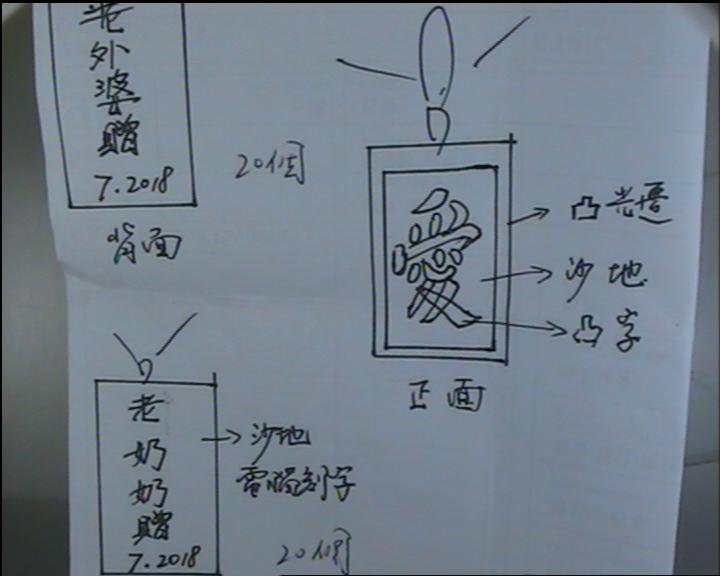 老
外
婆
贈
7.2018
20個
背面
愛
凸光邊
沙地
凸字
正面
老
奶
奶
贈
7.2018
沙地
電腦刻字
20個